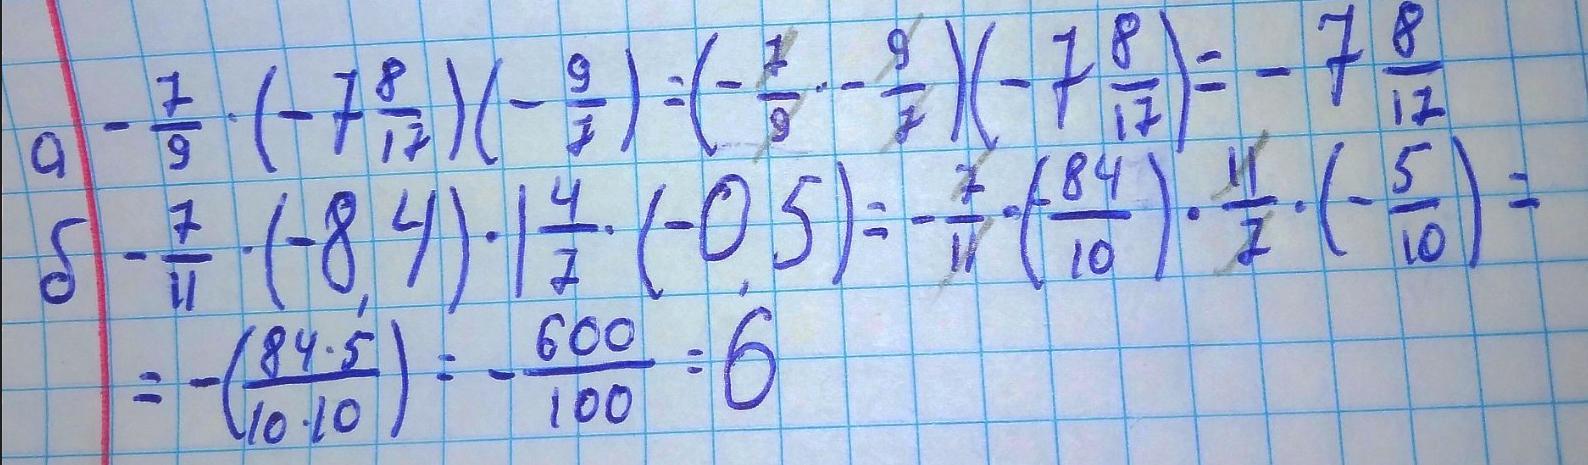 а -7/9 · (-7 8/17)(-9/7) = (-7/9 · -9/7)(-7 8/17) = -7 8/17
б -7/11 · (-8,4) · 1 4/7 · (-0,5) = -7/11 · (-84/10) · 11/7 · (-5/10) =
= -(84·5/10·10) = -600/100 = 6